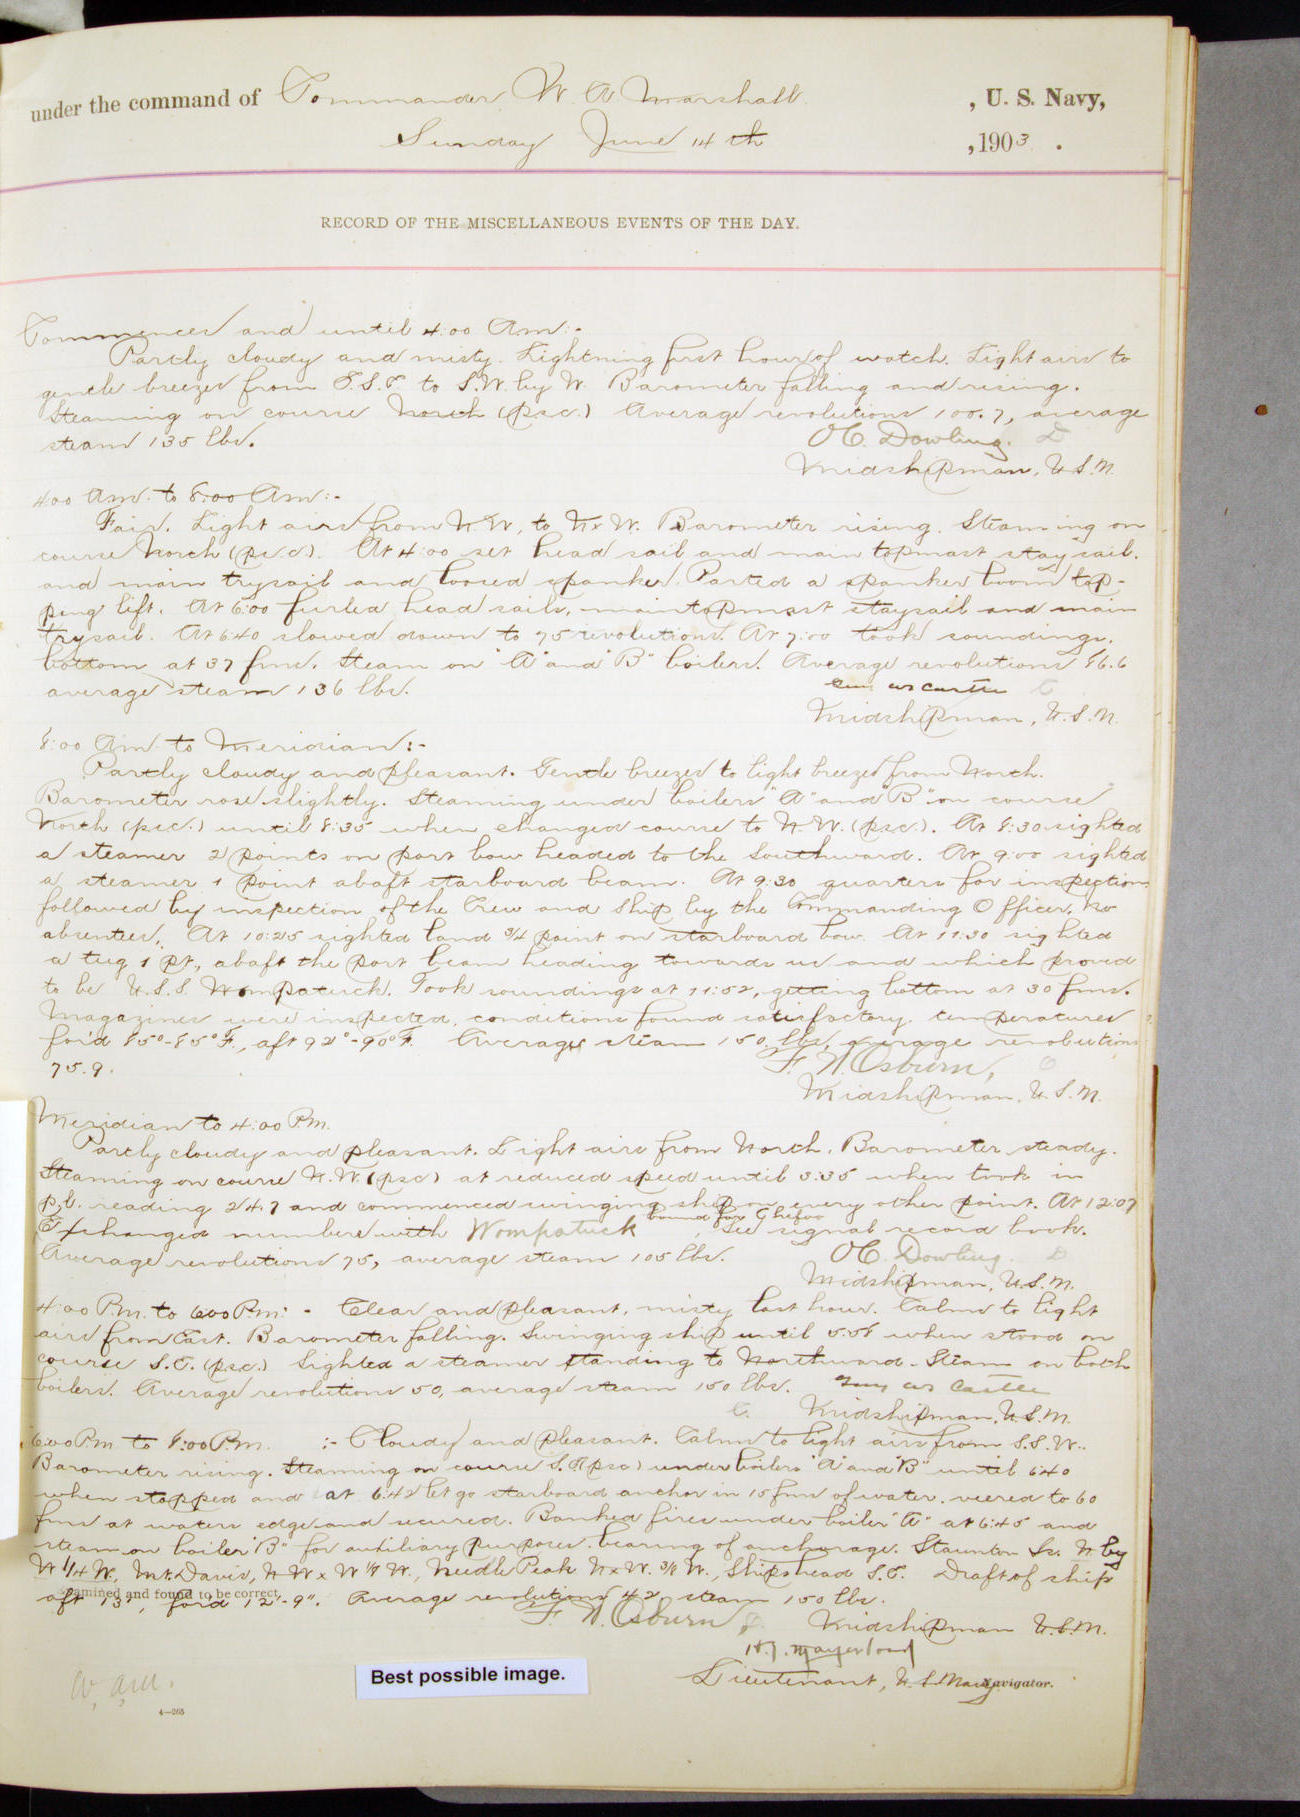 under the command of Commander W. A. Marshall , U. S. Navy,
Sunday June 14 th ,1903 .
RECORD OF THE MISCELLANEOUS EVENTS OF THE DAY.
Commences and until 4:00 Am:-
Partly cloudy and misty. Lightning first hour of watch. Light airs to
gentle breezes from E.S.E. to S.W. by W. Barometer falling and rising.
Steaming on course North (psc.) Average revolutions 100.7, average
steam 135 lbs.
O C. Dowling. D
Midshipman, U.S.N.
4:00 Am. to 8:00 Am:-
Fair. Light airs from N W, to N x W. Barometer rising. Steaming on
course North (psc). At 4:00 set head sail and main topmast stay sail.
and main trysail and loosed spanker. Parted a spanker boom top-
ping lift. At 6:00 furled head sails, main topmast staysail and main
trysail. At 6:40 slowed down to 75 revolutions. At 7:00 took soundings.
bottom at 37 fms. Steam on "A" and "B" boilers. Average revolutions 86.6
average steam 136 lbs.
Guy W S Castle C
Midshipman, U.S.N.
8:00 Am to Meridian:-
Partly cloudy and pleasant. Gentle breezes to light breezes from North.
Barometer rose slightly. Steaming under boilers "A" and "B" on course
North (psc.) until 8:35 when changed course to N.W. (psc.). At 8:30 sighted
a steamer 2 points on port bow headed to the Southward. At 9:00 sighted
a steamer 1 point abaft starboard beam. At 9:30 quarters for inspection
followed by inspection of the Crew and Ship by the Commanding Officer, no
absentees. At 10:25 sighted land 3/4 point on starboard bow. At 11:30 sighted
a tug 1 pt., abaft the port beam heading towards us and which proved
to be U.S.S. Wompatuck. Took soundings at 11:52, getting bottom at 30 fms.
Magazines were inspected, conditions found satisfactory. temperatures
for'd 85°-85°F., aft 92°-90°F. Average steam 150 lbs, average revolutions
75.9.
F. W. Osburn, O
Midshipman, U.S.N.
Meridian to 4:00 P.m.
Partly cloudy and pleasant. Light airs from North. Barometer steady.
Steaming on course N.W. (psc) at reduced speed until 3:35 when took in
p.l. reading 24.7 and commenced swinging ship on every other point. At 12:07
Exchanged numbers with Wompatuck bound for Chefoo, See signal record book.
Average revolutions 75, average steam 105 lbs.
O C. Dowling. D
Midshipman, U.S.N.
4:00 P.m. to 6:00 P.m:- Clear and pleasant, misty last hour. Calms to light
airs from East. Barometer falling. Swinging ship until 5:58 when stood on
course S.E. (psc.) Sighted a steamer standing to Northward. Steam on both
boilers. Average revolutions 50, average steam 150 lbs. Guy W S Castle
C. Midshipman, U.S.N.
6:00 P.m to 8:00 P.m. :- Cloudy and pleasant. Calms to light airs from S.S.W.
Barometer rising. Steaming on course S.E (psc) under boilers "A" and "B" until 6:40
when stopped and at 6:42 let go starboard anchor in 15 fms of water. veered to 60
fms at waters edge and secured. Banked fires under boiler "A" at 6:45 and
steam on boiler "B" for auxiliary purposes. bearing of anchorage. Staunton Is. N. by
W 1/4 W, Mt. Davis, N. W x W 1/8 W., Needle Peak N x W. 3/8 W., Shipshead S.E. Draft of ship
Examined and found to be correct,
aft 13', for'd 12'-9". Average revolutions 42, steam 150 lbs.
F. W. Osburn, O. Midshipman U.S.N.
Lieutenant, U. S. Navy Navigator.
W. A. M.
Best possible image.
4—265